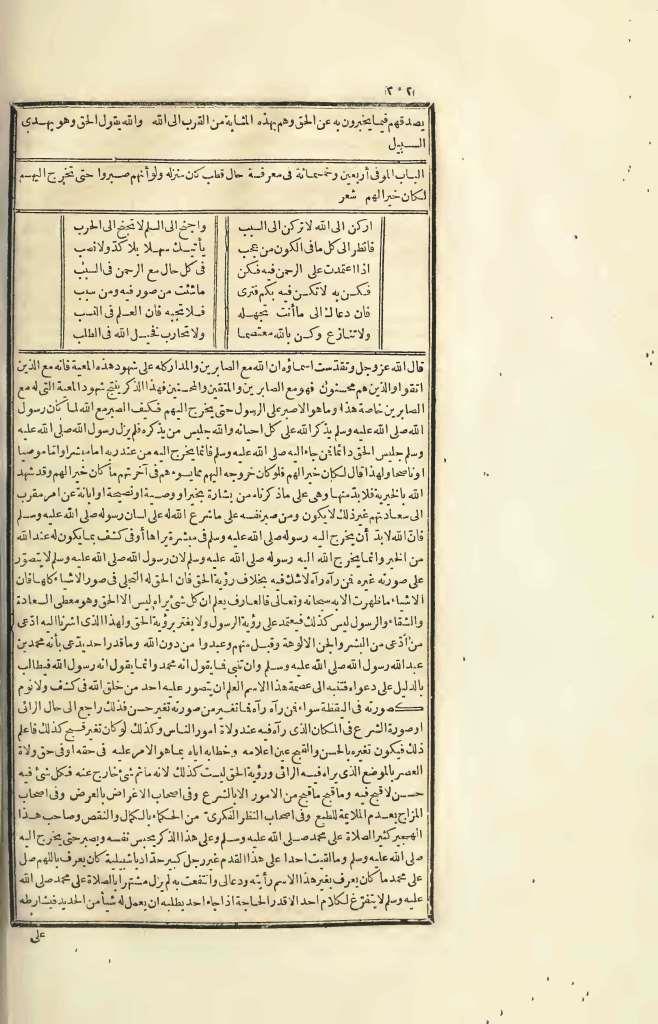 ٢٠٣
يصدقهم فيما يخبرون به عن الحق وهم بهذه المثابة من القرب الى الله والله يقول الحق وهو يهدى
السبيل
الباب الموفى أربعين وخمسمائة فى معرفة حال قطب كان منزله ولو أنهم صبروا حتى تخرج اليهم
لكان خيرا لهم شعر
اركن الى الله لا تركن الى السبب واجنح الى السلم لا تجنح الى الحرب
فانظر الى كل ما فى الكون من عجب يأتيك سهلا بلا كد ولا نصب
اذا اعتمدت على الرحمن فيه فكن فى كل حال مع الرحمن فى السبب
فكن به لا تكن فيه بكم فترى ما شئت من صور فيه ومن سبب
فان دعاك الى ما أنت تجهله فلا تجبه فان العلم فى النسب
ولا تنازع وكن بالله معتصما ولا تحارب الله فى الطلب
قال الله عز وجل وتقدست اسماؤه ان الله مع الصابرين والمدار كله على شهود هذه المعية فانه مع الذين
اتقوا والذين هم محسنون فهو مع الصابرين والمتقين والمحسنين فهذا الذكر ينتج شهود المعية التى له مع
الصابرين خاصة هذا وما هو الاصبر على الرسول حتى يخرج اليهم فكيف الصبر مع الله لما كان رسول
الله صلى الله عليه وسلم يذكر الله على كل احيانه والله جليس من يذكره فلم يزل رسول الله صلى الله عليه
وسلم جليس الحق دائما فمن جاء اليه صلى الله عليه وسلم فانما يخرج اليه من عند ربه اما مبشرا واما موصيا
او ناصحا ولهذا قال لكان خيرا لهم فلو كان خروجه اليهم مما يسوءهم فى آخرتهم ما كان خيرا لهم وقد شهد
الله بالخيرية فلا بد منها وهى على ما ذكرناه من بشارة بخير او وصية او نصيحة او ابانة عن امر مقرب
الى سعادتهم غير ذلك لا يكون ومن صبر نفسه على ما شرع الله له على لسان رسوله صلى الله عليه وسلم
فان الله لا بد أن يخرج اليه رسوله صلى الله عليه وسلم فى مبشرة يراها أو فى كشف بما يكون له عند الله
من الخير وانما يخرج الله اليه رسوله صلى الله عليه وسلم لان رسول الله صلى الله عليه وسلم لا يتصور
على صورته غيره فمن رآه رآه لا شك فيه بخلاف رؤية الحق فان الحق له التجلى فى صور الاشياء كلها فان
الاشياء ما ظهرت الا به سبحانه وتعالى فالعارف يعلم ان كل شئ يراه ليس الا الحق وهو معطى السعادة
والشقاء والرسول ليس كذلك فيعتمد على رؤية الرسول ولا يغتر برؤية الحق ولهذا الذى اشرنا اليه ادعى
من ادعى من البشر والجن الالوهة وقبل منهم وعبدوا من دون الله وما قدر احد يدعى بأنه محمد بن
عبد الله رسول الله صلى الله عليه وسلم وان تنبى فما يقول انه محمد وانما يقول انه رسول الله فيطالب
بالدليل على دعواه فتنبه الى عصمة هذا الاسم العلم ان يتصور عليه احد من خلق الله فى كشف ولا نوم
كصورته فى اليقظة سواء فمن رآه رآه فما تغير من صورته تغير حسن فذلك راجع الى حال الرائى
او صورة الشرع فى المكان الذى رآه فيه عند ولاة امور الناس وكذلك لو كان تغير قبيح كذلك فاعلم
ذلك فيكون تغيره بالحسن والقبيح عين اعلامه وخطابه اياه بما هو الامر عليه فى حقه او فى حق ولاة
العصر بالموضع الذى يراه فيه الرائى ورؤية الحق ليست كذلك لانه ما ثم شئ خارج عنه فكل شئ فيه
حسن لا قبيح فيه وما قبح ما قبح من الامور الا بالشرع وفى اصحاب الاغراض بالعرض وفى اصحاب
المزاج بعدم الملايمة للطبع وفى اصحاب النظر الفكرى من الحكماء بالكمال والنقص وصاحب هذا
الهجير كثير الصلاة على محمد صلى الله عليه وسلم وعلى هذا الذكر يحبس نفسه ويصبر حتى يخرج اليه
صلى الله عليه وسلم وما لقيت احدا على هذا القدم غير رجل كبير حداد باشبيلية كان يعرف باللهم صل
على محمد ما كان يعرف بغير هذا الاسم رأيته ودعا لى وانتفعت به لم يزل مشتهرا بالصلاة على محمد صلى الله
عليه وسلم لا يتفرغ لكلام احد الا قدر الحاجة اذا جاء احد يطلبه ان يعمل له شيأ من الحديد فيشارطه
على